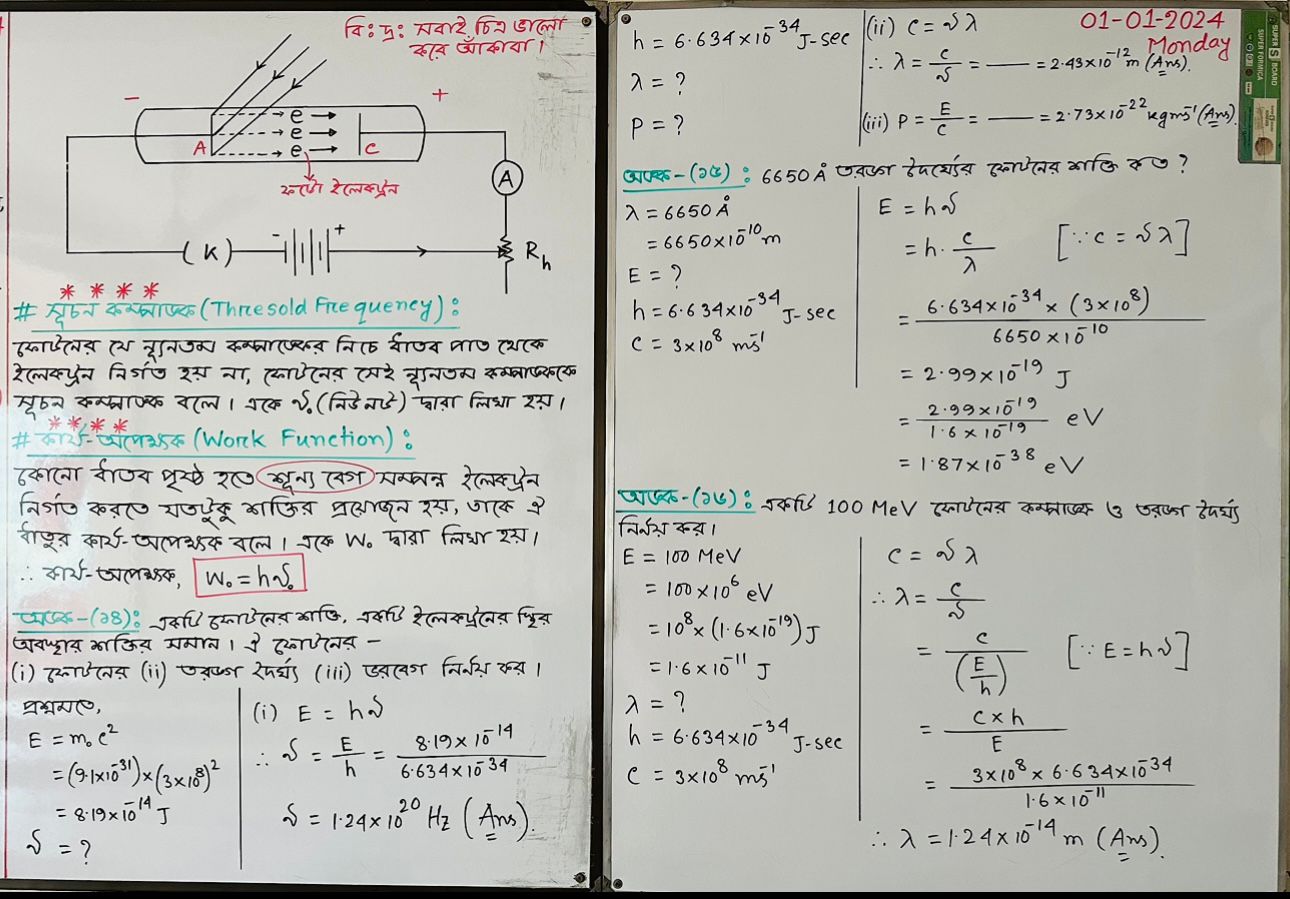 বি: দ্র: সবাই চিত্র ভালো
করে আঁকাবা।
-
+
e →
e →
e →
A
C
ফটো ইলেকট্রন
A
(K)
- +
Rh
* * * *
# সূচন কম্পাঙ্ক (Thresold Frequency) :
ফোটনের যে ন্যূনতম কম্পাঙ্কের নিচে ধাতব পাত থেকে
ইলেকট্রন নির্গত হয় না, ফোটনের সেই ন্যূনতম কম্পাঙ্ককে
সূচন কম্পাঙ্ক বলে। একে ν₀ (নিউনট) দ্বারা লিখা হয়।
* * * *
# কার্য-অপেক্ষক (Work Function) :
কোনো ধাতব পৃষ্ঠ হতে শূন্য বেগ সম্পন্ন ইলেকট্রন
নির্গত করতে যতটুকু শক্তির প্রয়োজন হয়, তাকে ঐ
ধাতুর কার্য-অপেক্ষক বলে। একে W₀ দ্বারা লিখা হয়।
∴ কার্য-অপেক্ষক, W₀ = hν₀
অংক-(১৪): একটি ফোটনের শক্তি, একটি ইলেকট্রনের স্থির
অবস্থার শক্তির সমান। ঐ ফোটনের –
(i) ফোটনের (ii) তরঙ্গ দৈর্ঘ্য (iii) ভরবেগ নির্নয় কর।
প্রশ্নমতে,
E = m₀c²
= (9.1×10⁻³¹)×(3×10⁸)²
= 8.19×10⁻¹⁴ J
ν = ?
(i) E = hν
∴ ν = E/h = 8.19×10⁻¹⁴ / 6.634×10⁻³⁴
ν = 1.24×10²⁰ Hz (Ans).
01-01-2024
Monday
h = 6.634×10⁻³⁴ J-sec
λ = ?
P = ?
(ii) c = νλ
∴ λ = c/ν = —— = 2.43×10⁻¹² m (Ans).
(iii) P = E/c = —— = 2.73×10⁻²² kgms⁻¹ (Ans).
SUPER BOARD
SUPER FORMICA
অংক-(১৫): 6650 Å তরঙ্গ দৈর্ঘ্যের ফোটনের শক্তি কত ?
λ = 6650 Å
= 6650×10⁻¹⁰ m
E = ?
h = 6.634×10⁻³⁴ J-sec
c = 3×10⁸ ms⁻¹
E = hν
= h. c/λ [∵ c = νλ]
= 6.634×10⁻³⁴ × (3×10⁸) / 6650×10⁻¹⁰
= 2.99×10⁻¹⁹ J
= 2.99×10⁻¹⁹ / 1.6×10⁻¹⁹ eV
= 1.87×10⁻³⁸ eV
অংক-(১৬): একটি 100 MeV ফোটনের কম্পাঙ্ক ও তরঙ্গ দৈর্ঘ্য
নির্নয় কর।
E = 100 MeV
= 100×10⁶ eV
= 10⁸×(1.6×10⁻¹⁹) J
= 1.6×10⁻¹¹ J
λ = ?
h = 6.634×10⁻³⁴ J-sec
c = 3×10⁸ ms⁻¹
c = νλ
∴ λ = c/ν
= c/(E/h) [∵ E = hν]
= c×h / E
= 3×10⁸ × 6.634×10⁻³⁴ / 1.6×10⁻¹¹
∴ λ = 1.24×10⁻¹⁴ m (Ans).